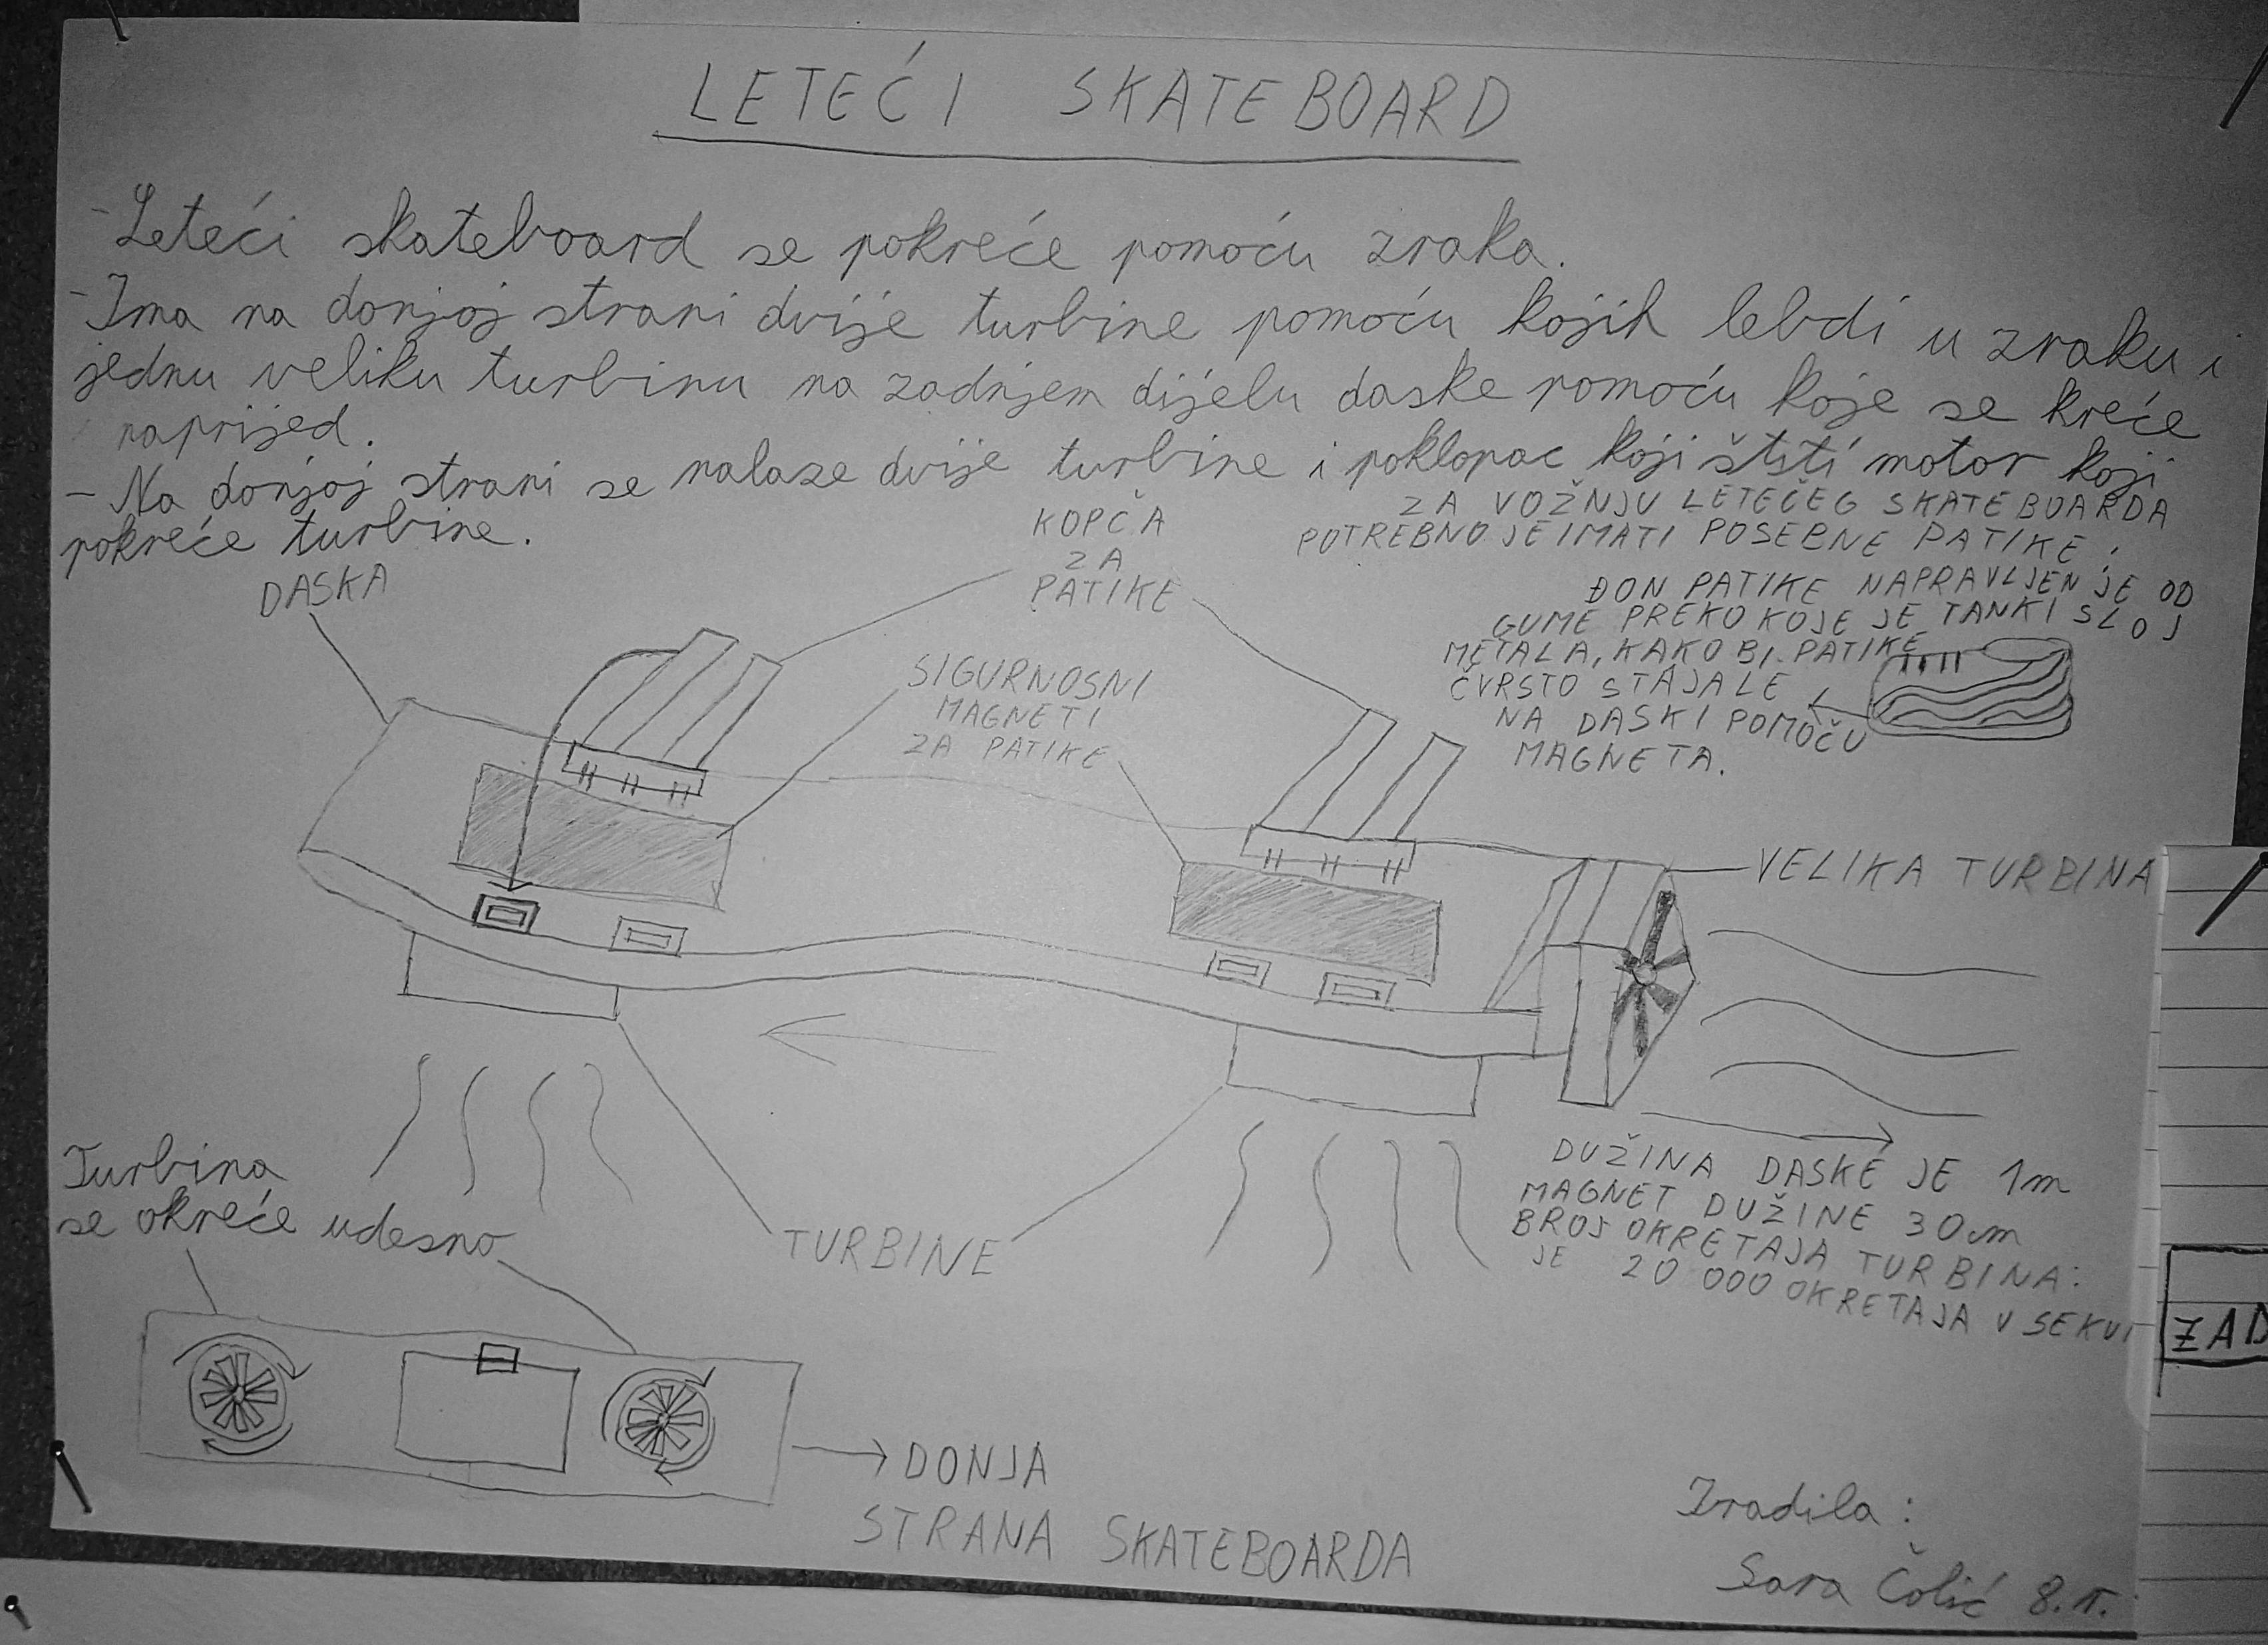 LETEĆI SKATEBOARD
- Leteći skateboard se pokreće pomoću zraka.
- Ima na donjoj strani dvije turbine pomoću kojih lebdi u zraku i
jednu veliku turbinu na zadnjem dijelu daske pomoću koje se kreće
naprijed.
- Na donjoj strani se nalaze dvije turbine i poklopac koji štiti motor koji
pokreće turbine.
ZA VOŽNJU LETEČEG SKATEBOARDA
POTREBNO JE IMATI POSEBNE PATIKE;
ĐON PATIKE NAPRAVLJEN JE OD
GUME PREKO KOJE JE TANKI SLOJ
METALA, KAKO BI PATIKE
ČVRSTO STAJALE
NA DASKI POMOČU
MAGNETA.
DASKA
KOPČA
ZA
PATIKE
SIGURNOSNI
MAGNETI
ZA PATIKE
VELIKA TURBINA
TURBINE
DUŽINA DASKE JE 1m
MAGNET DUŽINE 30cm
BROJ OKRETAJA TURBINA:
JE 20 000 OKRETAJA U
Turbina
se okreće udesno
DONJA
STRANA SKATEBOARDA
Izradila:
Sara Čolić
ZAD